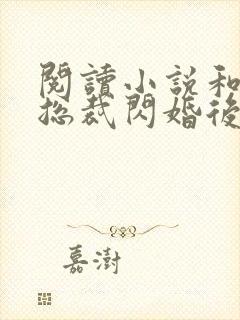 閱讀小說和
總裁閃婚後
嘉澍